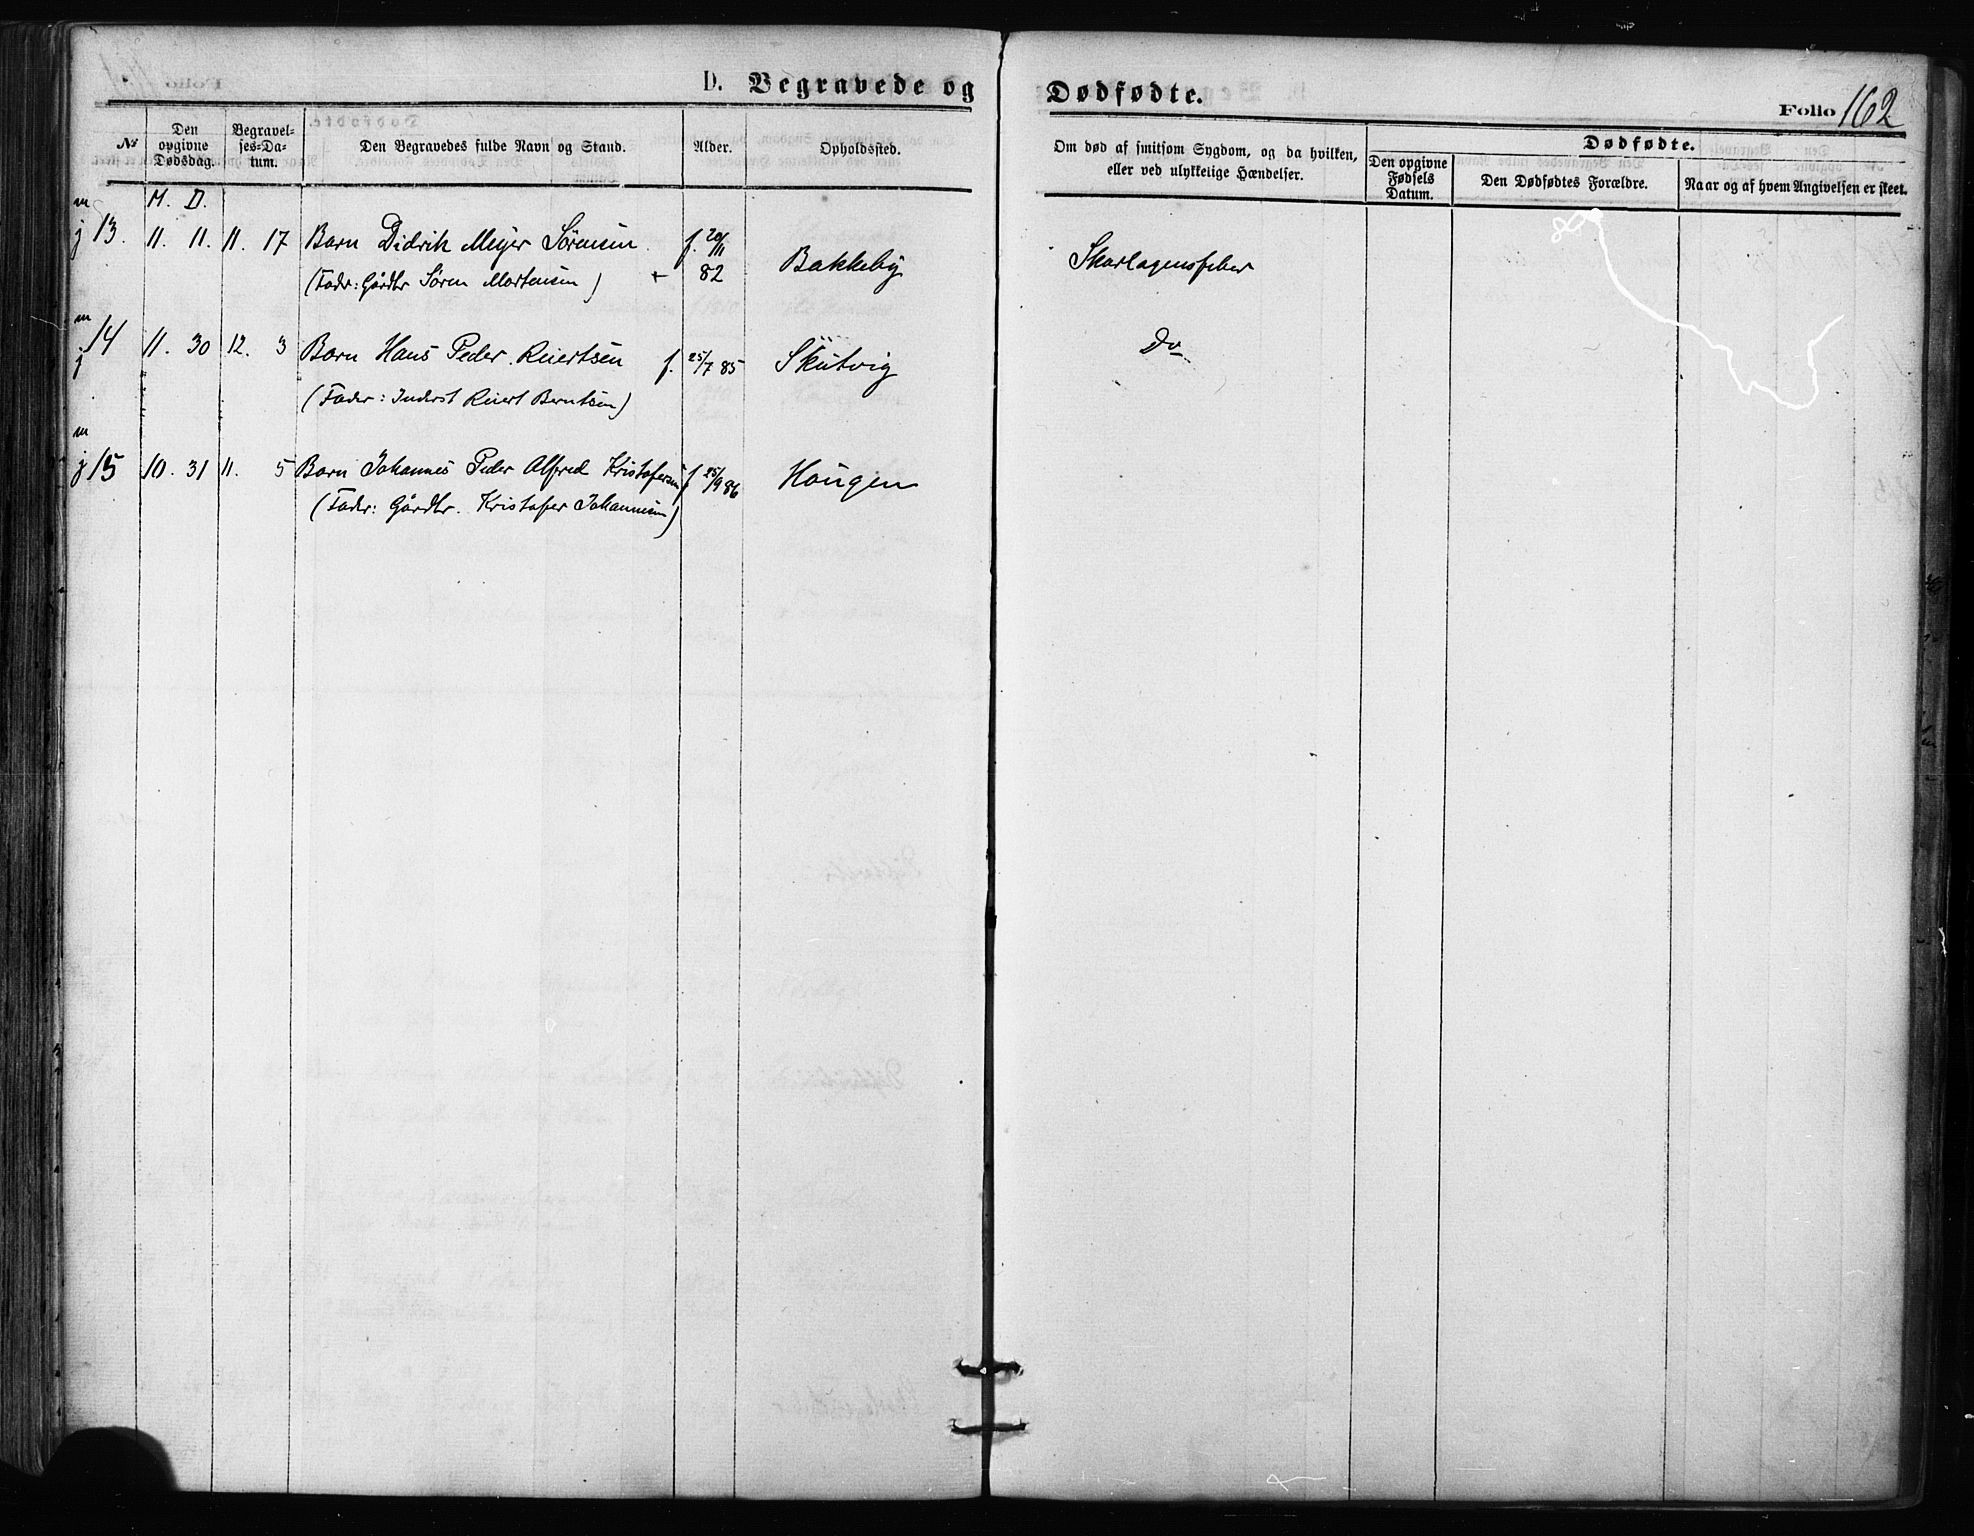 D. Begravede og Dødfødte.
Folio 162
№
Den opgivne Dødsdag.
Begravel-ses-Da-tum.
Den Begravedes fulde Navn og Stand.
Alder.
Opholdssted.
Om død af smitsom Sygdom, og da hvilken, eller ved ulykkelige Hændelser.
Dødfødte.
Den opgivne Fødsels Datum.
Den Dødfødtes Forældre.
Naar og af hvem Angivelsen er skeet.
M. D.
m
j 13. 11. 11. 11. 17 Barn Didrik Meyer Sørensen f. 20/11 82 Bakkeby Skarlagensfeber
(Fader: Gårdbr Søren Mortensen) +
m
j 14 11. 30 12. 3 Barn Hans Peder Reiertsen f. 25/7 85 Skutvig Do
(Fader: Inderst Reiert Berntsen)
m
j 15 10. 31 11. 5 Barn Johannes Peder Alfred Kristofersen f 25/9 86 Hougen
(Fader: Gårdbr. Kristofer Johannesen)